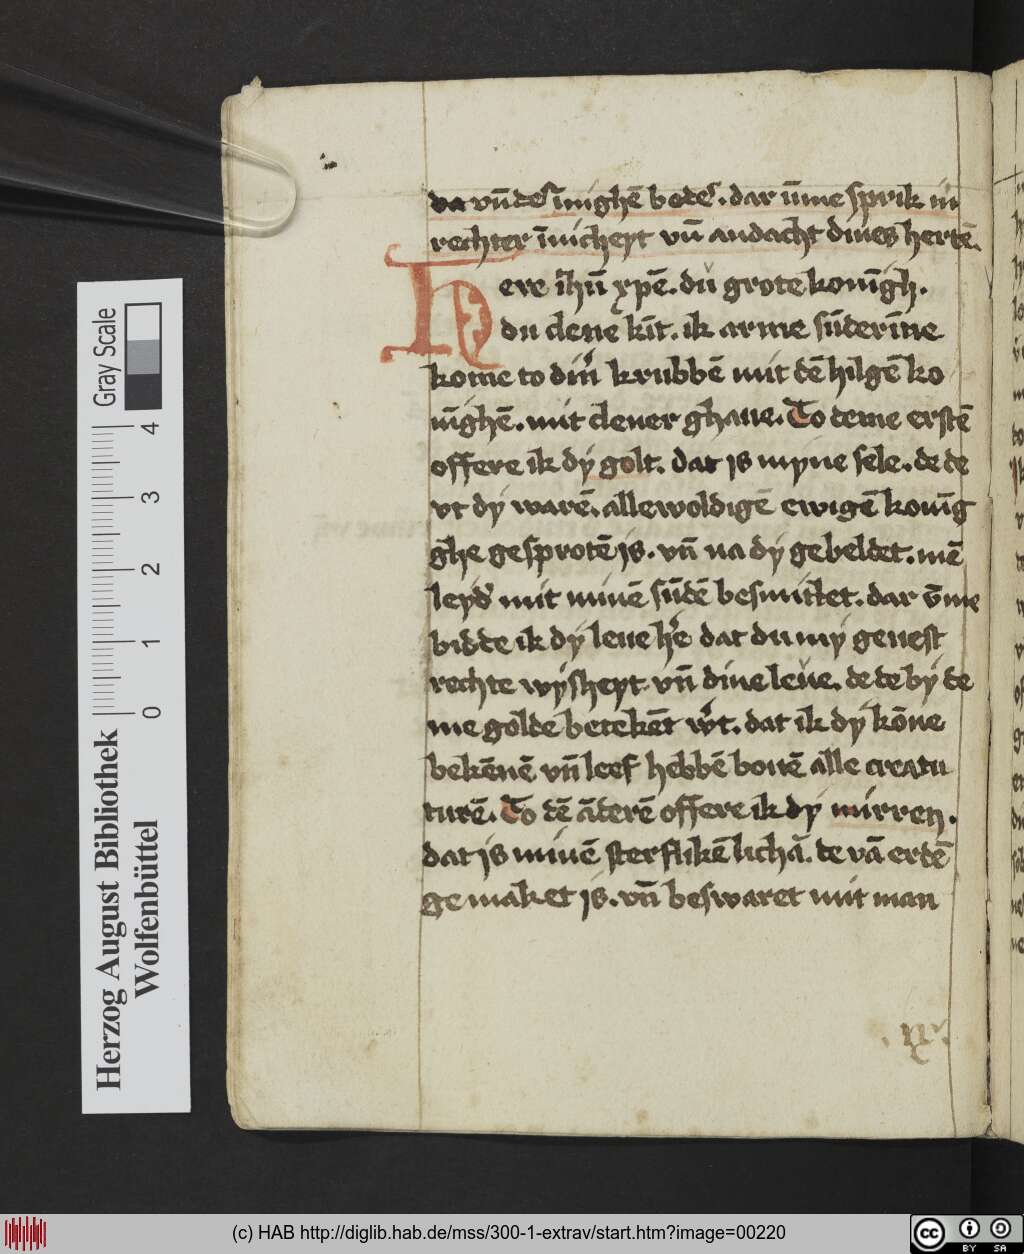 va vn̄ des īnighē bedes. dar ūme sprik in
rechter īnicheyt vn̄ andacht dines hertē.
Here ih̄u xp̄e. du grote konīgh.
du clene kīt. ik arme sūderīne
kome to dīn krubbē mit dē hilgē ko
nīghē. mit clener ghaue. To deme erstē
offere ik dy golt. dat is myne sele. de de
vt dy warē. allewoldigē ewigē konīg
ghe gesprotē is. vn̄ na dy gebeldet. mē
leyd' mit minē sūdē besmittet. dar v̄me
bidde ik dy leue h'e dat du my geuest
rechte wysheyt vn̄ dine leue. de de by de
me golde betekēt w't. dat ik dy kōne
bekēnē vn̄ leef hebbē bouē alle creatu
turē. To dē āderē offere ik dy mirren.
dat is minē sterflikē lichā. de vā erdē
gemaket is. vn̄ beswaret mit man
Gray Scale
0 1 2 3 4
Herzog August Bibliothek
Wolfenbüttel
(c) HAB http://diglib.hab.de/mss/300-1-extrav/start.htm?image=00220
cc BY SA